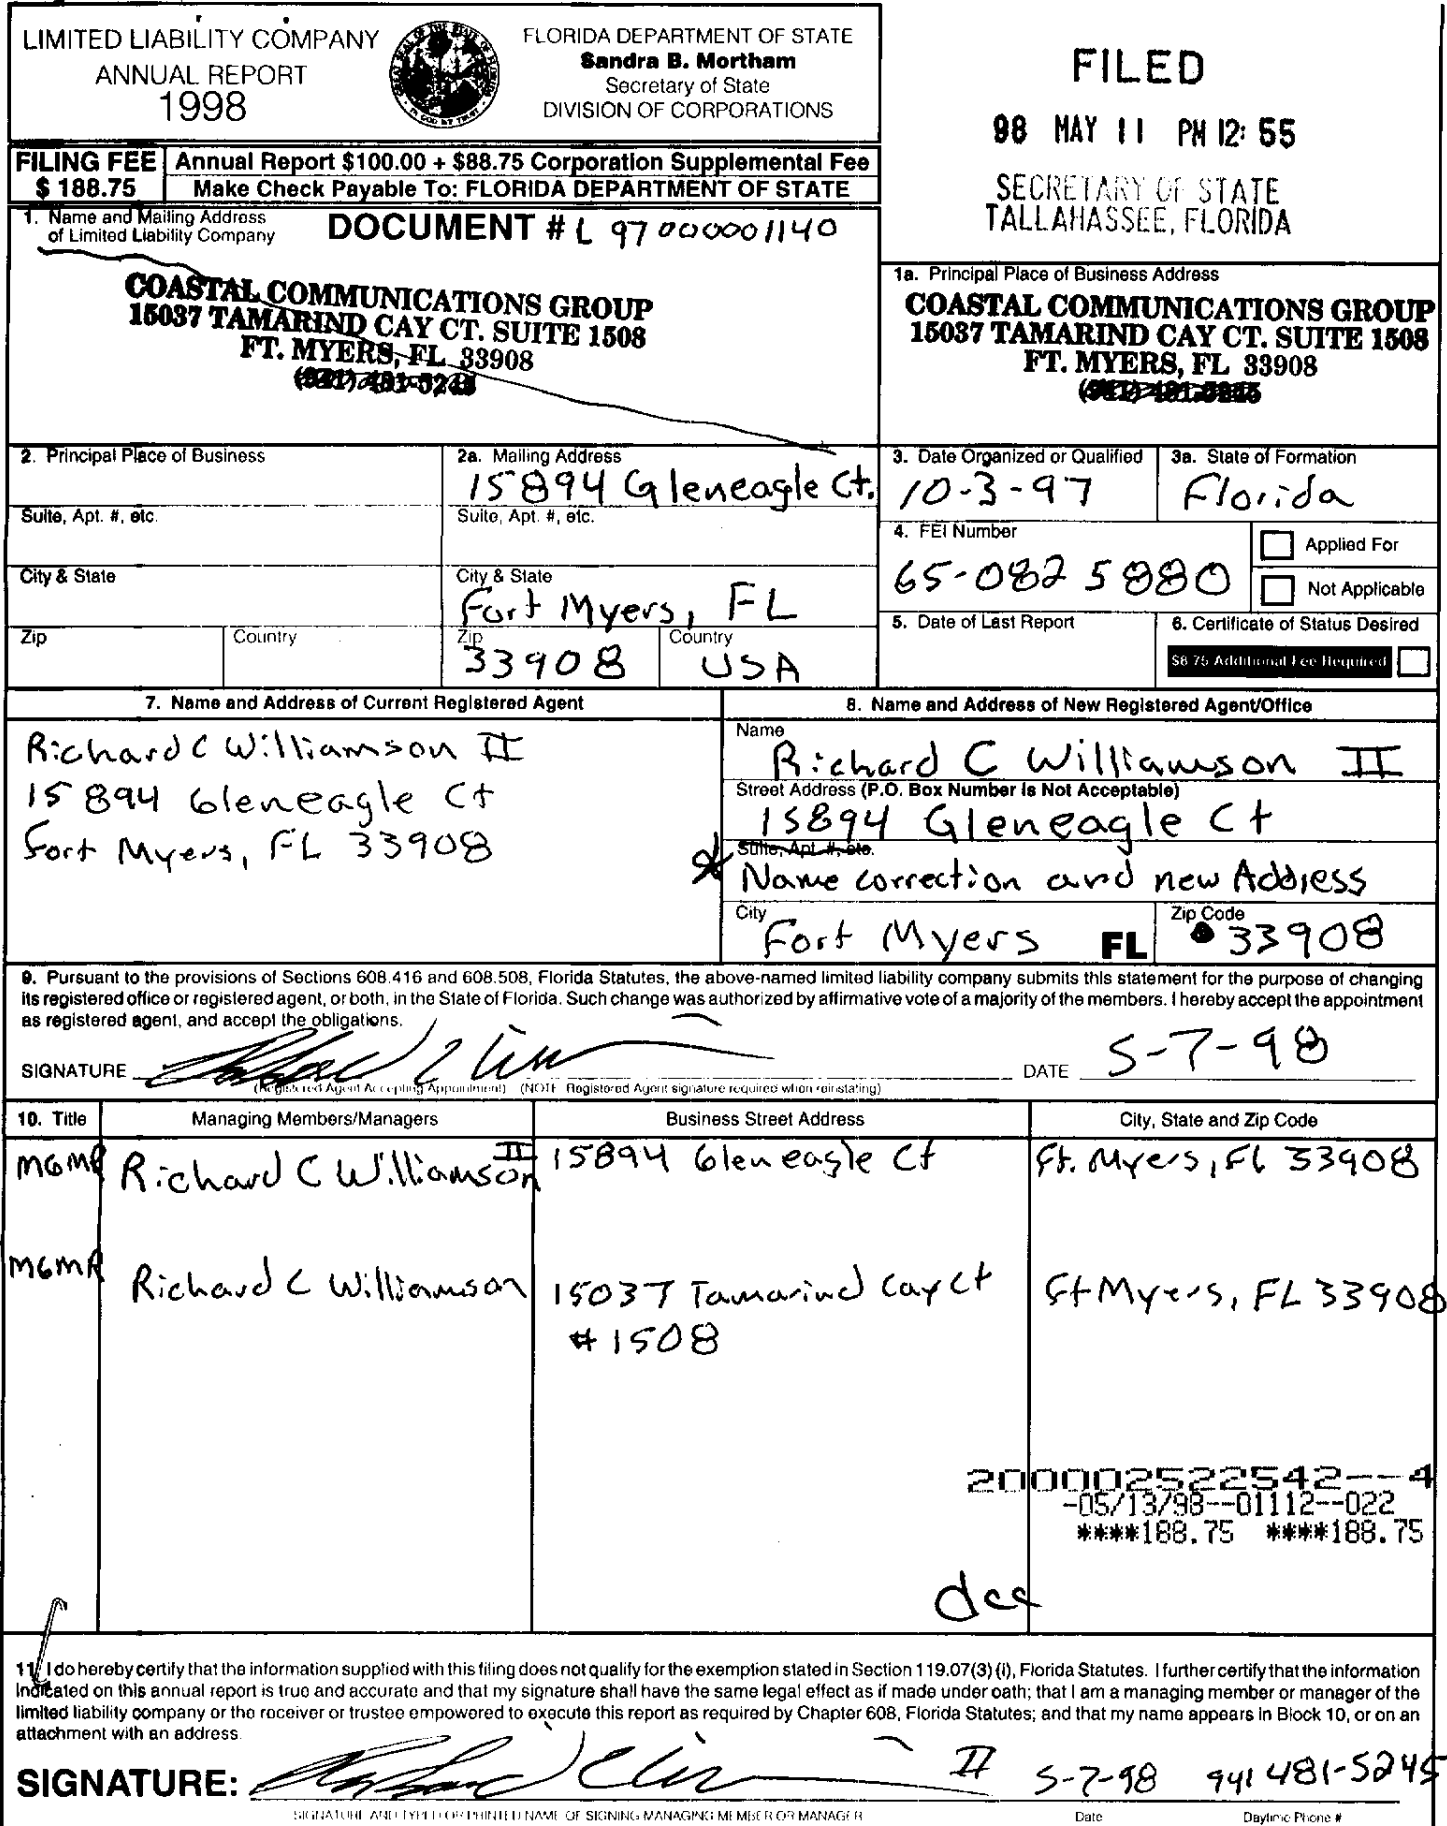 LIMITED LIABILITY COMPANY
ANNUAL REPORT
1998
FLORIDA DEPARTMENT OF STATE
Sandra B. Mortham
Secretary of State
DIVISION OF CORPORATIONS
FILED
98 MAY 11 PM 12:55
SECRETARY OF STATE
TALLAHASSEE, FLORIDA
FILING FEE
$ 188.75
Annual Report $100.00 + $88.75 Corporation Supplemental Fee
Make Check Payable To: FLORIDA DEPARTMENT OF STATE
1. Name and Mailing Address
of Limited Liability Company
DOCUMENT # L 97000001140
COASTAL COMMUNICATIONS GROUP
15037 TAMARIND CAY CT. SUITE 1508
FT. MYERS, FL 33908
1a. Principal Place of Business Address
COASTAL COMMUNICATIONS GROUP
15037 TAMARIND CAY CT. SUITE 1508
FT. MYERS, FL 33908
2. Principal Place of Business
2a. Mailing Address
15894 Gleneagle Ct.
Suite, Apt. #, etc.
Suite, Apt. #, etc.
City & State
City & State
Fort Myers, FL
Zip
Country
Zip
33908
Country
USA
3. Date Organized or Qualified
10-3-97
3a. State of Formation
Florida
4. FEI Number
65-0825880
Applied For
Not Applicable
5. Date of Last Report
6. Certificate of Status Desired
$8.75 Additional Fee Required
7. Name and Address of Current Registered Agent
Richard C Williamson II
15894 Gleneagle Ct
Fort Myers, FL 33908
8. Name and Address of New Registered Agent/Office
Name
Richard C Williamson II
Street Address (P.O. Box Number Is Not Acceptable)
15894 Gleneagle Ct
Suite, Apt. #, etc.
* Name correction and new Address
City
Fort Myers FL
Zip Code
33908
9. Pursuant to the provisions of Sections 608.416 and 608.508, Florida Statutes, the above-named limited liability company submits this statement for the purpose of changing
its registered office or registered agent, or both, in the State of Florida. Such change was authorized by affirmative vote of a majority of the members. I hereby accept the appointment
as registered agent, and accept the obligations.
SIGNATURE
DATE 5-7-98
(Registered Agent Accepting Appointment) (NOTE Registered Agent signature required when reinstating)
10. Title
Managing Members/Managers
Business Street Address
City, State and Zip Code
MGMR Richard C Williamson II 15894 Gleneagle Ct Ft. Myers, FL 33908
MGMR Richard C Williamson 15037 Tamarind Cay Ct Ft Myers, FL 33908
#1508
200002522542--4
-05/13/98--01112--022
****188.75 ****188.75
dcc
11. I do hereby certify that the information supplied with this filing does not qualify for the exemption stated in Section 119.07(3)(i), Florida Statutes. I further certify that the information
indicated on this annual report is true and accurate and that my signature shall have the same legal effect as if made under oath; that I am a managing member or manager of the
limited liability company or the receiver or trustee empowered to execute this report as required by Chapter 608, Florida Statutes; and that my name appears in Block 10, or on an
attachment with an address.
SIGNATURE: II 5-7-98 941 481-5245
SIGNATURE AND TYPED OR PRINTED NAME OF SIGNING MANAGING MEMBER OR MANAGER
Date
Daytime Phone #